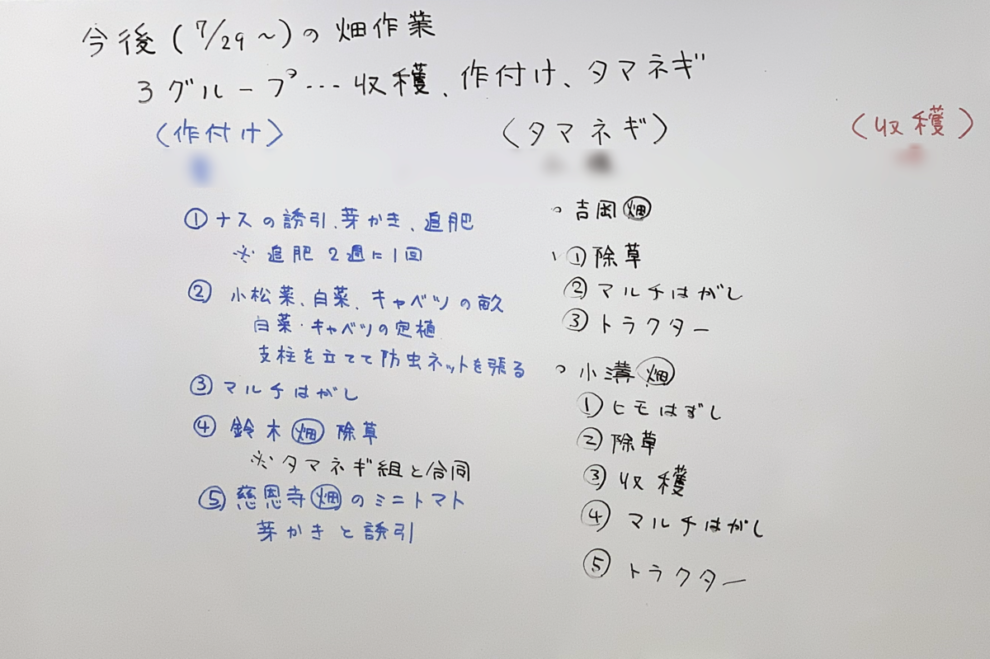 今後(7/29～)の畑作業
3グループ…収穫、作付け、タマネギ
〈作付け〉
①ナスの誘引、芽かき、追肥
※追肥2週に1回
②小松菜、白菜、キャベツの畝
白菜・キャベツの定植
支柱を立てて防虫ネットを張る
③マルチはがし
④鈴木畑除草
※タマネギ組と合同
⑤慈恩寺畑のミニトマト
芽かきと誘引
〈タマネギ〉
○吉岡畑
①除草
②マルチはがし
③トラクター
○小溝畑
①ヒモはずし
②除草
③収穫
④マルチはがし
⑤トラクター
〈収穫〉